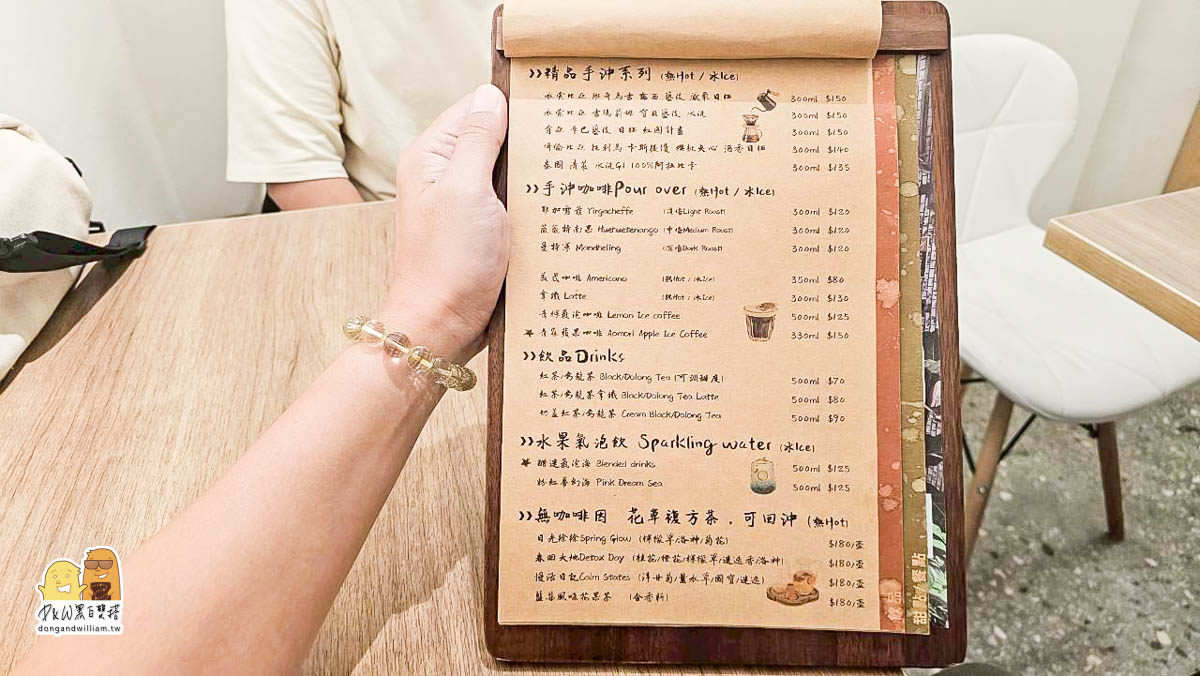 >>精品手沖系列 (熱Hot / 冰Ice)
衣索比亞 班奇馬吉 藝伎 厭氧日曬 300ml $150
衣索比亞 吉瑪 藝伎 水洗 300ml $150
藝伎 日曬 紅圈計畫 300ml $150
哥倫比亞 櫻桃夾心 酒香日曬 300ml $140
泰國 清萊 水洗G1 100%阿拉比卡 300ml $135
>>手沖咖啡Pour over (熱Hot / 冰Ice)
耶加雪菲 Yirgacheffe (淺焙Light Roast) 300ml $120
薇薇特南果 Huehuetenango (中焙Medium Roast) 300ml $120
曼特寧 Mandheling (深焙Dark Roast) 300ml $120
美式咖啡 Americano (熱Hot / 冰Ice) 350ml $80
拿鐵 Latte (熱Hot / 冰Ice) 300ml $130
青檸氣泡咖啡 Lemon Ice coffee 500ml $125
青森蘋果咖啡 Aomori Apple Ice Coffee 330ml $150
>>飲品Drinks
紅茶/烏龍茶 Black/Oolong Tea (可調甜度) 500ml $70
紅茶/烏龍茶拿鐵 Black/Oolong Tea Latte 500ml $80
奶蓋紅茶/烏龍茶 Cream Black/Oolong Tea 500ml $90
>>水果氣泡飲 Sparkling water (冰Ice)
氣泡海 Blended drinks 500ml $125
粉紅夢幻海 Pink Dream Sea 500ml $125
>>無咖啡因 花草複方茶，可回沖 (熱Hot)
日光徐徐Spring Glow (檸檬草/洛神/菊花) $180/壺
春田大地Detox Day (桂花/橙花/檸檬草/迷迭香/洛神) $180/壺
慢活日記Calm States (洋甘菊/薰衣草/國寶/迷迭) $180/壺
藍莓風味花果茶 (含香料) $180/壺
飲品
甜點/餐點
D&W黑白雙搭
dongandwilliam.tw